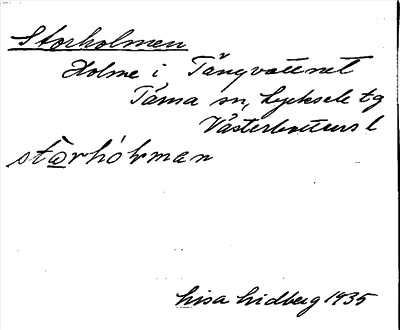 Storholmen
Holme i Tängvattnet
Tärna sn, Lycksele tg
Västerbottens l
stɷrhólman
Lisa Lidberg 1935